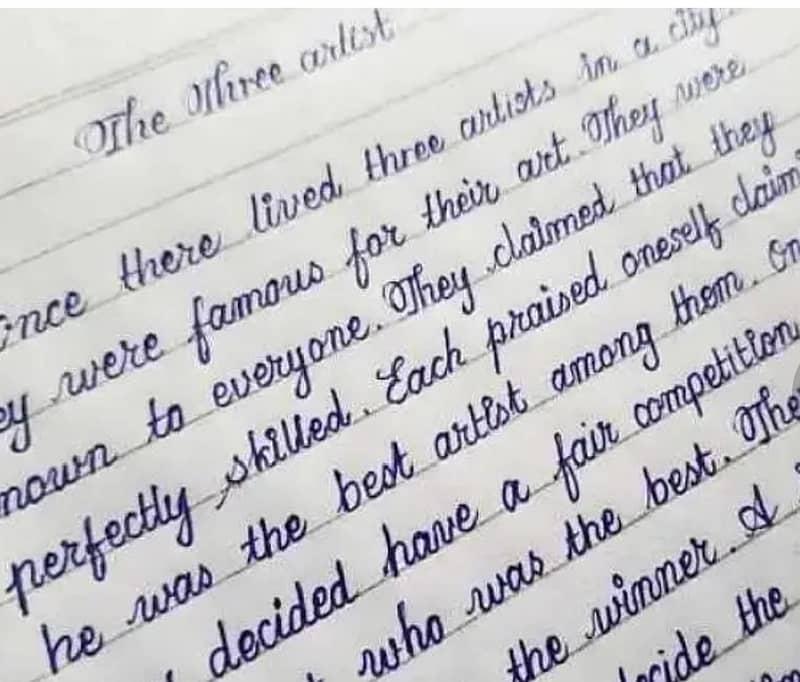 The Three artist
Once there lived three artists in a city
ey were famous for their art. They were
nown to everyone. They claimed that they
perfectly skilled. Each praised oneself claimi
he was the best artist among them. On
decided have a fair competition
who was the best. The
the winner. A
decide the